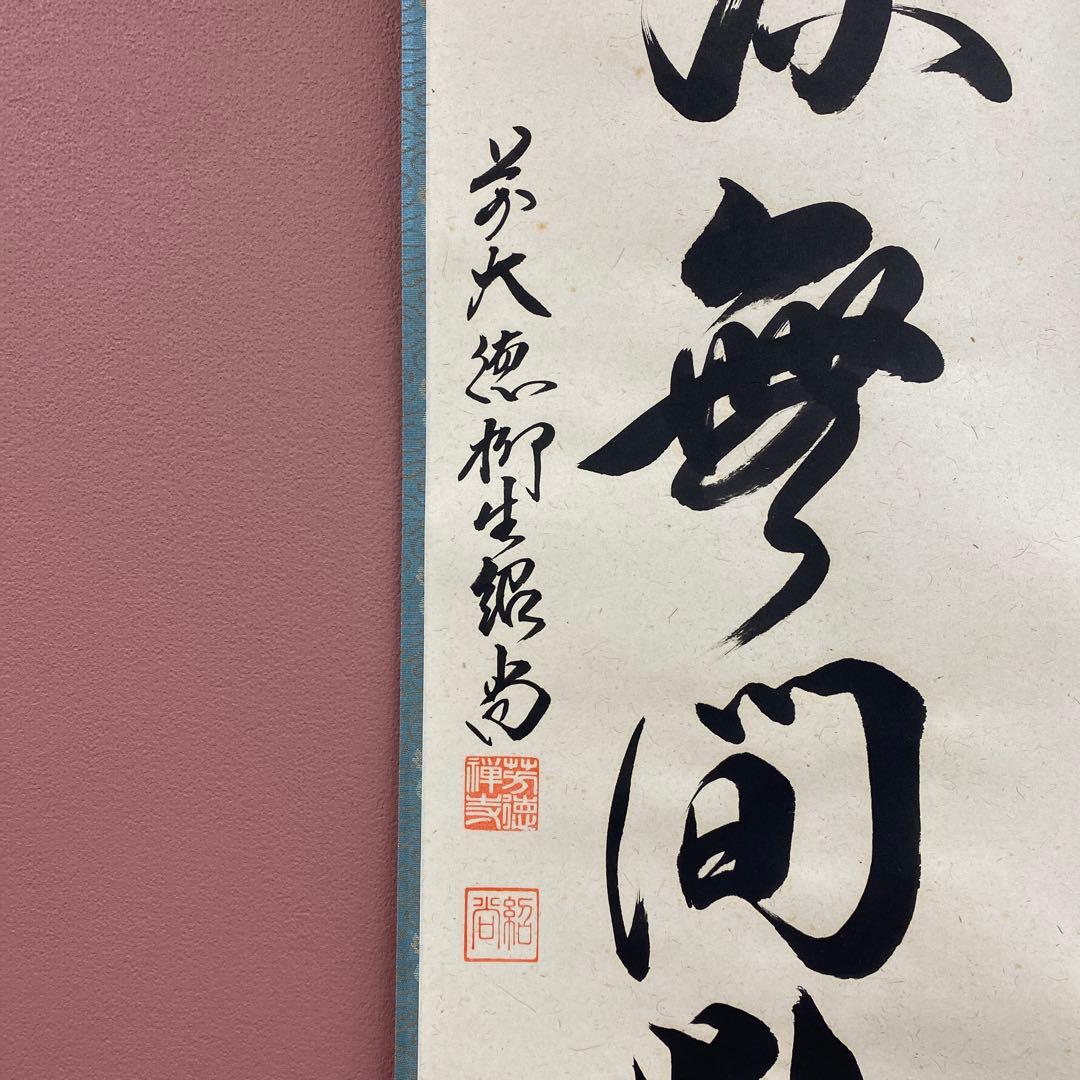 無間
前大徳柳生紹尚
芳徳禅寺
紹尚